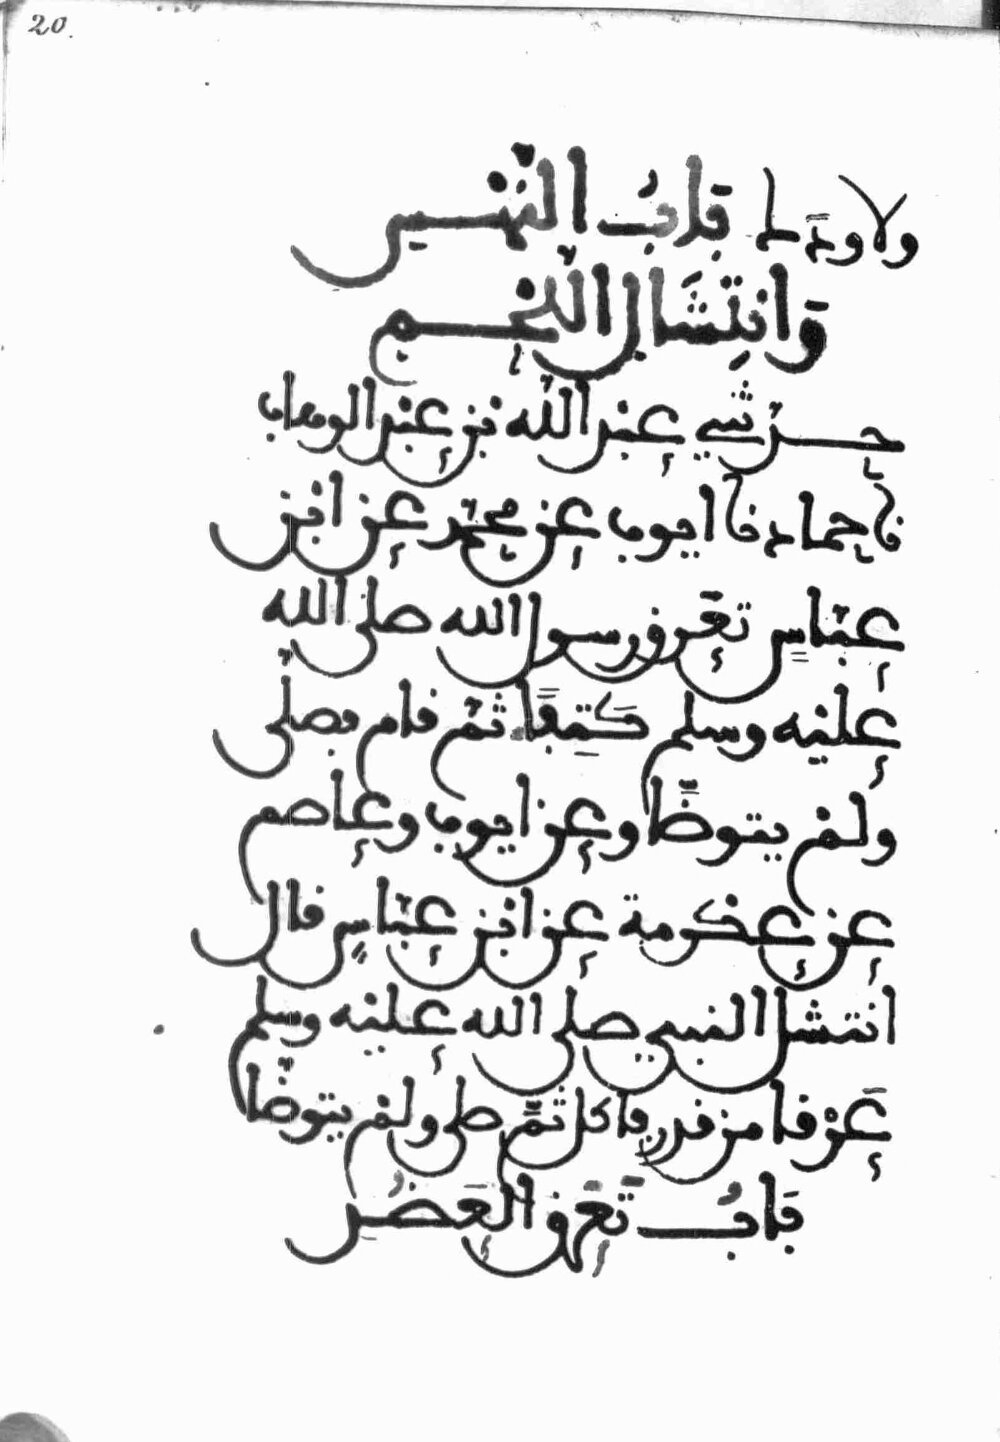 20.
ولا ودك باب النهس
وانتشال اللحم
حدثني عبد الله بن عبد الوهاب
نا حماد نا ايوب عن محمد عن ابن
عباس تعرق رسول الله صلى الله
عليه وسلم كتفا ثم قام فصلى
ولم يتوضأ وعن ايوب وعاصم
عن عكرمة عن ابن عباس قال
انتشل النبي صلى الله عليه وسلم
عرقا من قدر فاكل ثم صلى ولم يتوضأ
باب تعرق العضد